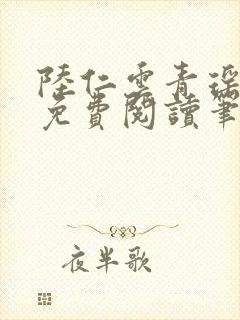 陸仁雲青瑤
免費閱讀筆
夜半歌